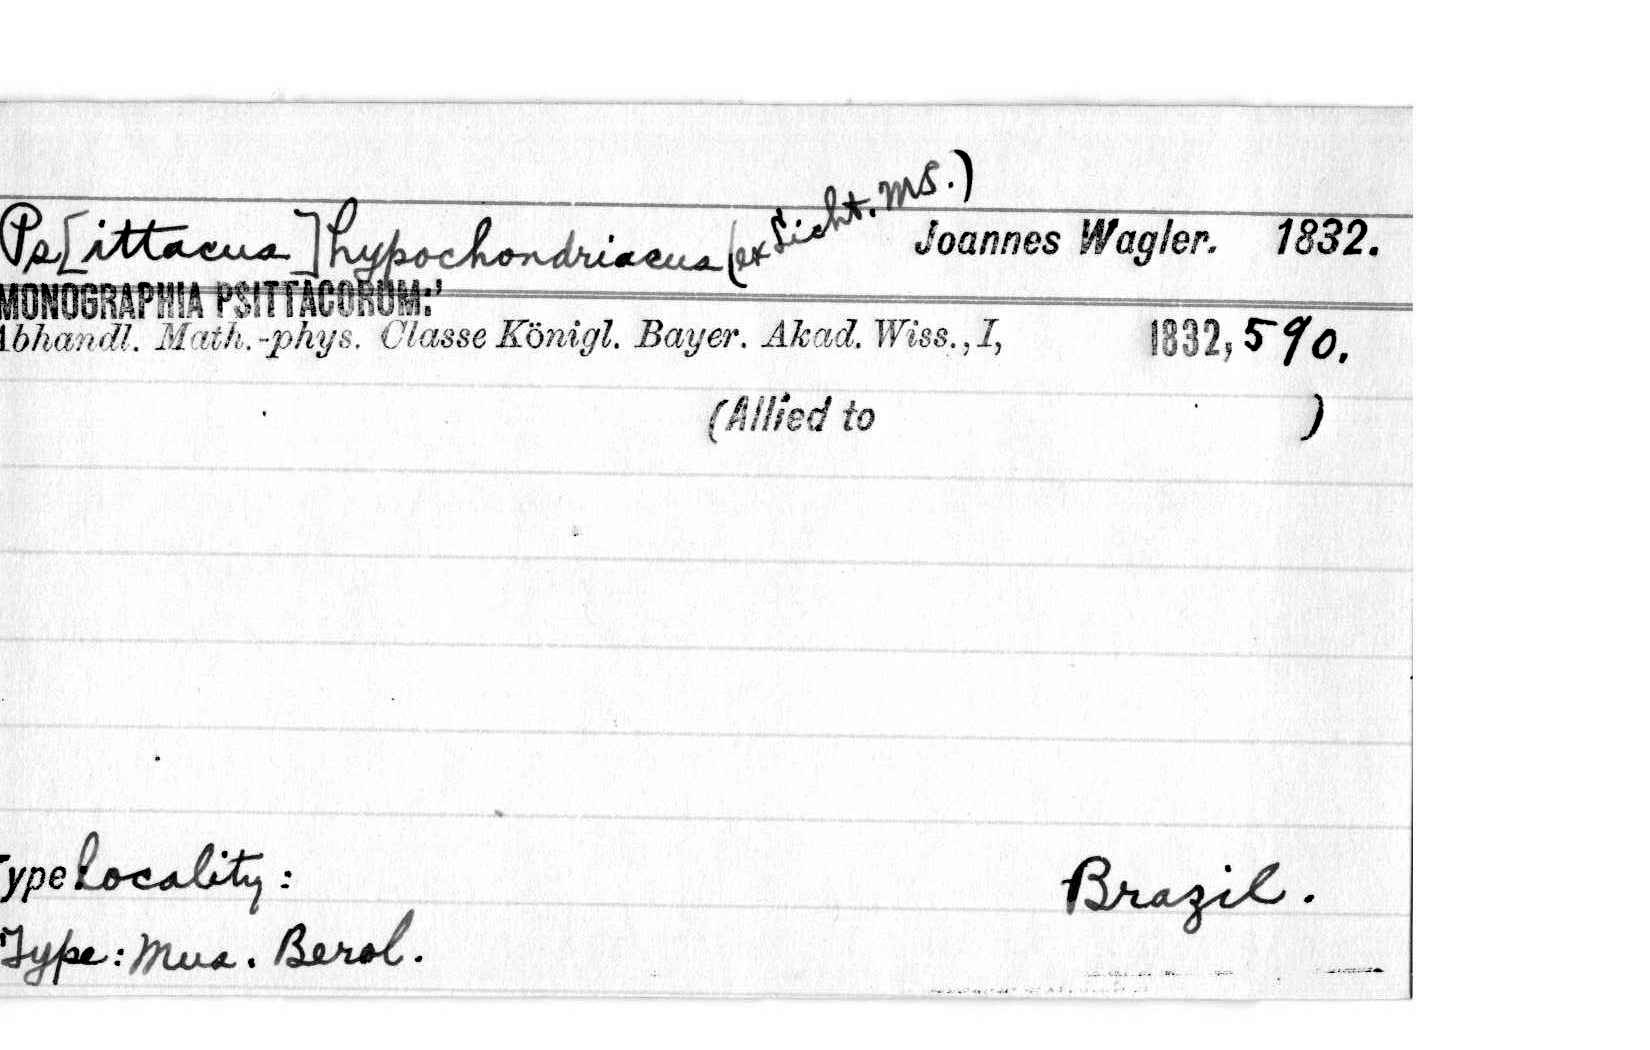 Ps[ittacus] hypochondriacus (ex Licht. MS.) Joannes Wagler. 1832.
MONOGRAPHIA PSITTACORUM:'
Abhandl. Math.-phys. Classe Königl. Bayer. Akad. Wiss., I, 1832, 590.
(Allied to )
Type locality: Brazil.
Type: Mus. Berol.